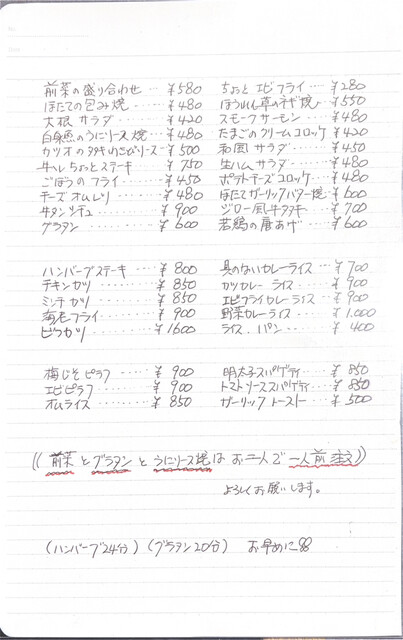 前菜の盛り合わせ … ¥580
ほたての包み焼 …… ¥480
大根サラダ …… ¥420
白身魚のうにソース焼 … ¥480
カツオのタタキわさびソース … ¥500
牛ヘレちょっとステーキ … ¥750
ごぼうのフライ …… ¥450
チーズオムレツ …… ¥480
牛タンシチュー …… ¥900
グラタン …… ¥600
ちょっとエビフライ … ¥280
ほうれん草のネギ焼 … ¥550
スモークサーモン …… ¥480
たまごのクリームコロッケ … ¥420
和風サラダ …… ¥450
生ハムサラダ …… ¥480
ポテトチーズコロッケ … ¥480
ほたてガーリックバター焼 … ¥600
ジロー風牛タタキ … ¥700
若鶏の唐あげ …… ¥600
ハンバーグステーキ … ¥800
チキンカツ …… ¥850
ミンチカツ …… ¥850
海老フライ …… ¥900
ビフカツ …… ¥1600
具のないカレーライス … ¥700
カツカレーライス … ¥900
エビフライカレーライス … ¥900
野菜カレーライス … ¥1.000
ライス、パン …… ¥400
梅じそピラフ …… ¥900
エビピラフ …… ¥900
オムライス …… ¥850
明太子スパゲティ … ¥850
トマトソーススパゲティ … ¥850
ガーリックトースト … ¥500
((前菜とグラタンとうにソース焼はお二人で一人前注文))
よろしくお願いします。
(ハンバーグ24分) (グラタン20分) お早めに